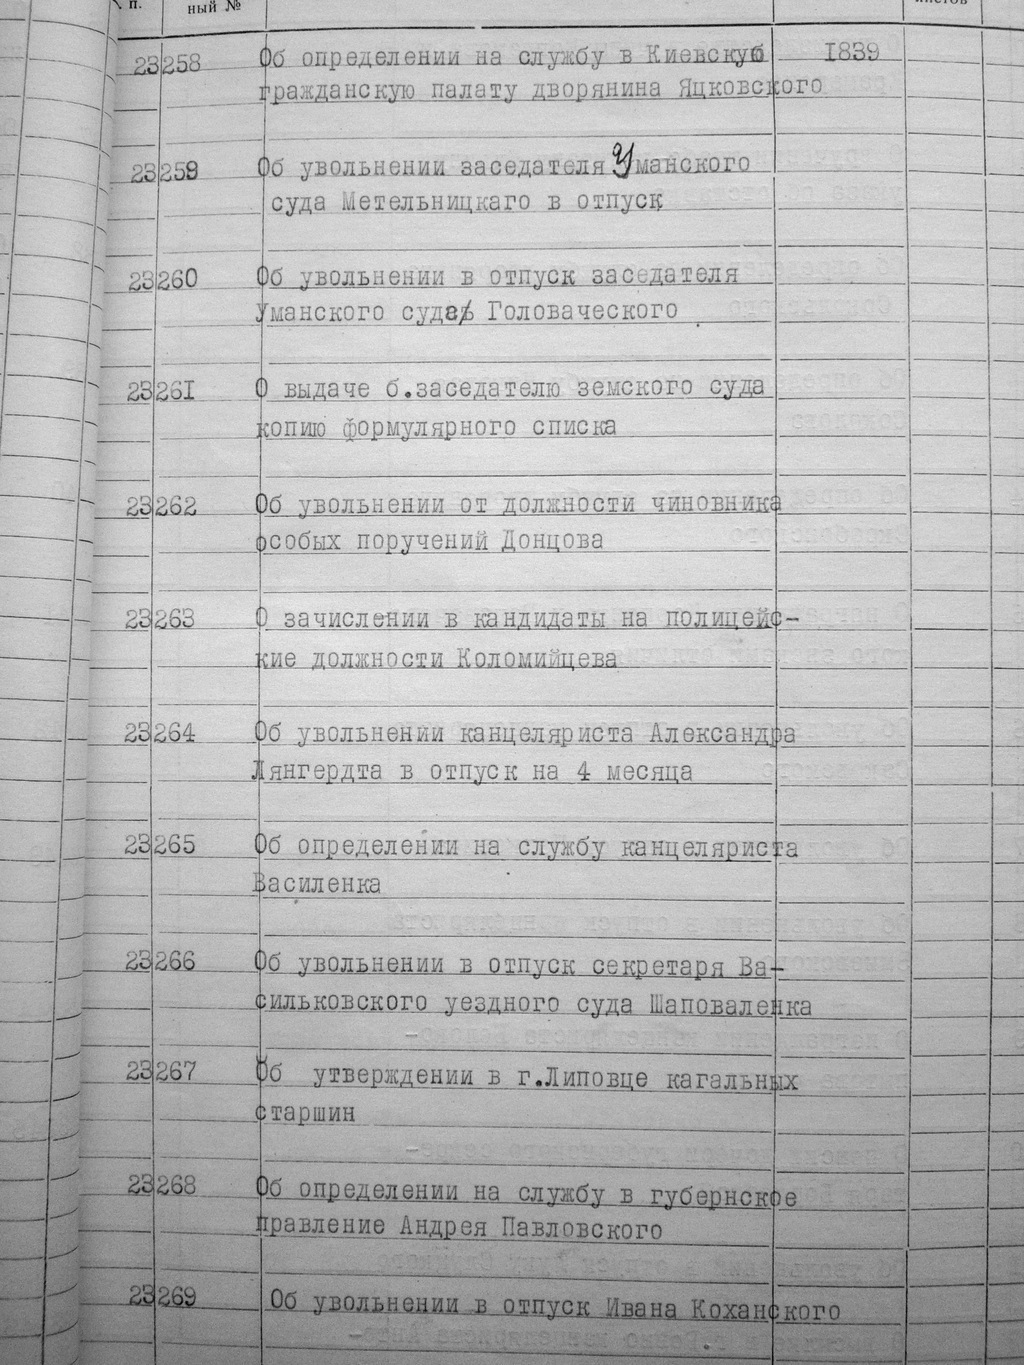 п. ный № листов
23258 Об определении на службу в Киевскую 1839
гражданскую палату дворянина Яцковского
23259 Об увольнении заседателя Уманского
суда Метельницкаго в отпуск
23260 Об увольнении в отпуск заседателя
Уманского суда Головаческого
23261 О выдаче б.заседателю земского суда
копию формулярного списка
23262 Об увольнении от должности чиновника
особых поручений Донцова
23263 О зачислении в кандидаты на полицейс-
кие должности Коломийцева
23264 Об увольнении канцеляриста Александра
Лянгердта в отпуск на 4 месяца
23265 Об определении на службу канцеляриста
Василенка
23266 Об увольнении в отпуск секретаря Ва-
сильковского уездного суда Шаповаленка
23267 Об утверждении в г.Липовце кагальных
старшин
23268 Об определении на службу в губернское
правление Андрея Павловского
23269 Об увольнении в отпуск Ивана Коханского